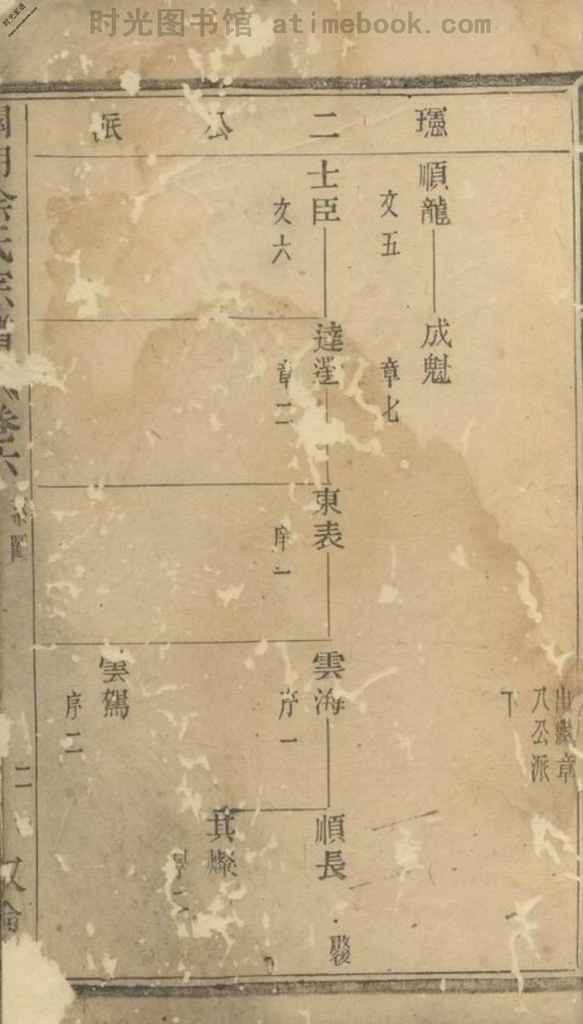 时光图书馆 atimebook.com
璶二公派
順龍
文五
成魁
章七
出繼章
八公派
下
士臣
文六
達瀅
章二
東表
序一
雲海
序一
順長
其燦
雲鴐
序二
氏宗譜
卷六
二